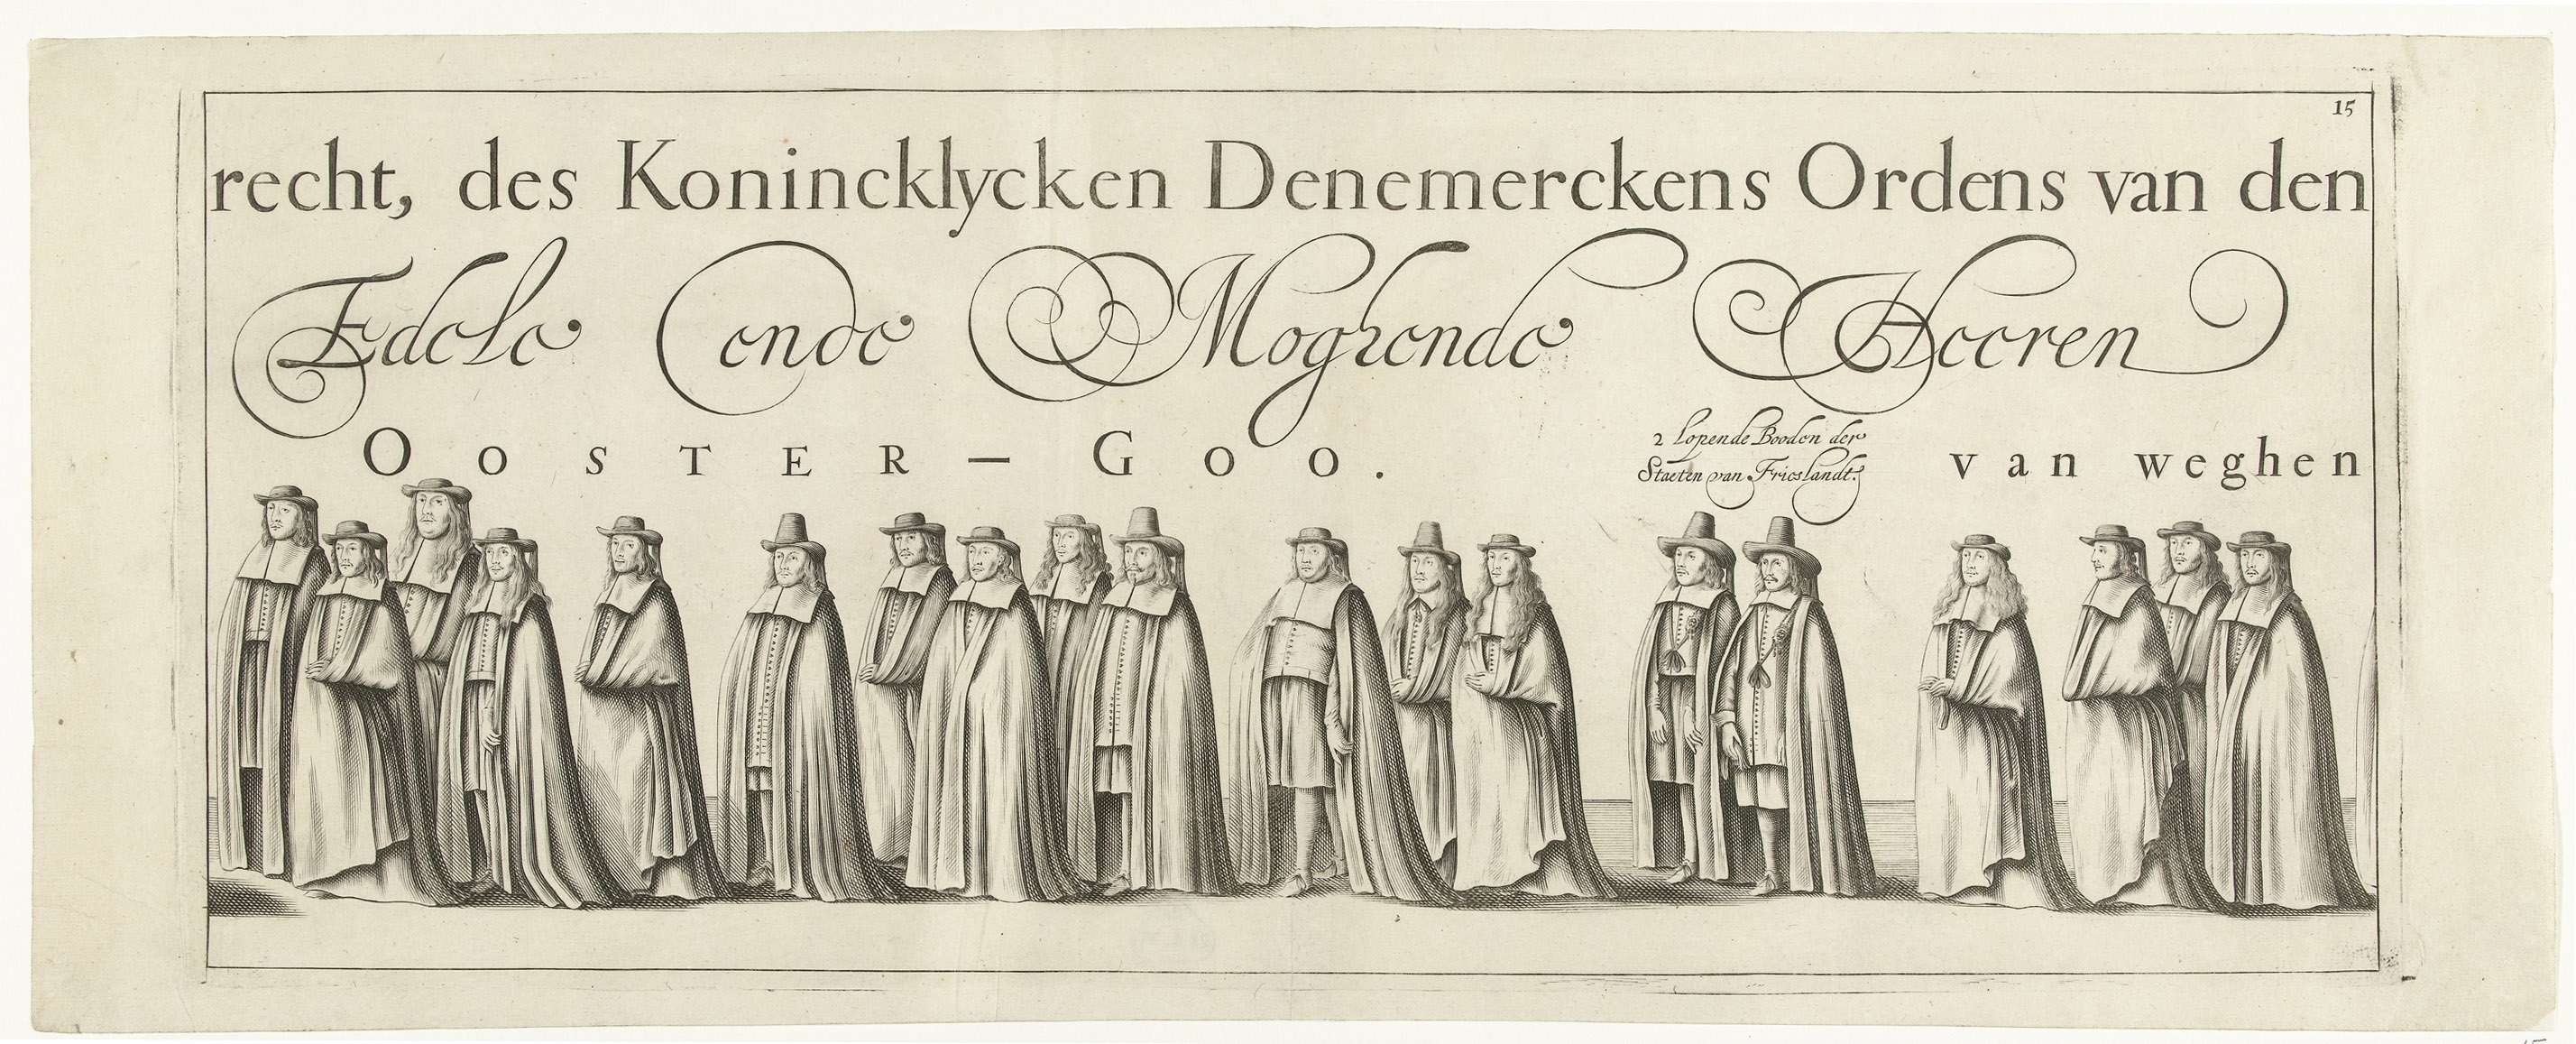 15
recht, des Konincklycken Denemerckens Ordens van den
Edele ende Moghende Heeren
OOSTER-GOO.
2 lopende Booden der
Staeten van Frieslandt.
van weghen